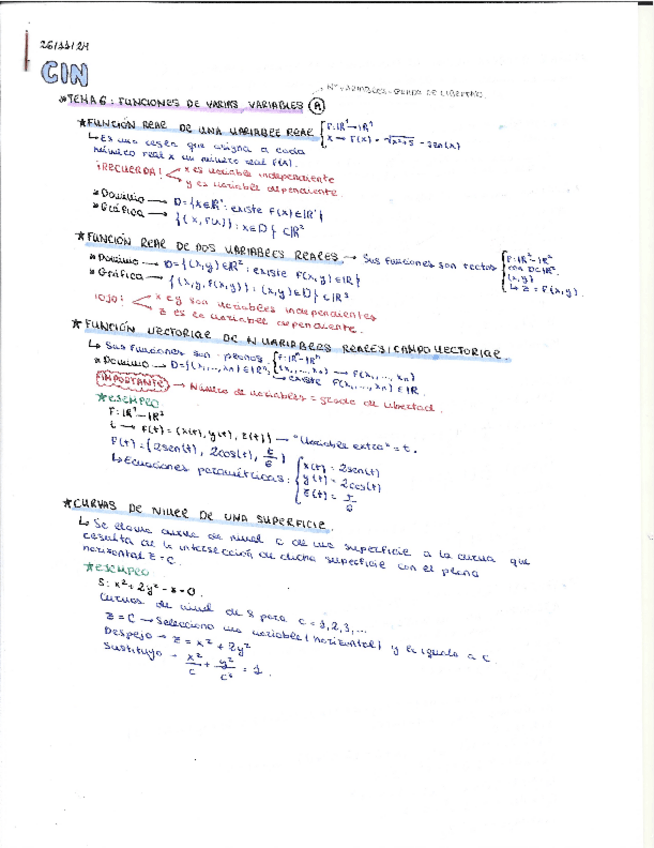 26/11/24
CIN
Nº VARIABLES = GRADO DE LIBERTAD
*TEMA 6: FUNCIONES DE VARIAS VARIABLES (A)
*FUNCIÓN REAL DE UNA VARIABLE REAL { F: IR¹→IR¹
x → F(x) = √x²+5 - sen(x)
↳ Es una que asigna a cada
número real x un número real F(x).
¡RECUERDA! < x es variable independiente
y es variable dependiente.
* Dominio → D={x∈IR¹: existe F(x)∈IR¹}
* Gráfica → {(x, F(x)): x∈D} ⊂ IR²
*FUNCIÓN REAL DE DOS VARIABLES REALES → Sus funciones son rectas { F: IR²→IR¹
con D⊂IR².
(x,y)
↳ z = F(x,y).
* Dominio → D={(x,y)∈IR²: existe F(x,y)∈IR}
* Gráfica → {(x,y,F(x,y)): (x,y)∈D} ⊂ IR³
¡OJO! < x e y son variables independientes
z es la variable dependiente.
*FUNCIÓN VECTORIAL DE N VARIABLES REALES/CAMPO VECTORIAL.
↳ Sus funciones son planos { F: IRⁿ→IRⁿ
(x₁,...,xₙ) → F(x₁,...,xₙ)
* Dominio → D={(x₁,...,xₙ)∈IRⁿ, existe F(x₁,...,xₙ)∈IR.
¡IMPORTANTE! → Número de variables = grado de libertad.
*EJEMPLO
F: IR¹→IR³
t → F(t) = (x(t), y(t), z(t)) → "Variable extra" = t.
F(t) = (2sen(t), 2cos(t), t/6)
↳ Ecuaciones paramétricas: { x(t) = 2sen(t)
y(t) = 2cos(t)
z(t) = t/6
*CURVAS DE NIVEL DE UNA SUPERFICIE.
↳ Se llama curva de nivel c de una superficie a la curva que
resulta de la intersección de dicha superficie con el plano
horizontal z = c.
*EJEMPLO
S: x² + 2y² - z = 0.
Curvas de nivel de S para c = 1, 2, 3, ...
z = c → Selecciono una variable (horizontal) y la igualo a c.
Despejo → z = x² + 2y²
Sustituyo → x²/c + y²/c⁶ = 1.